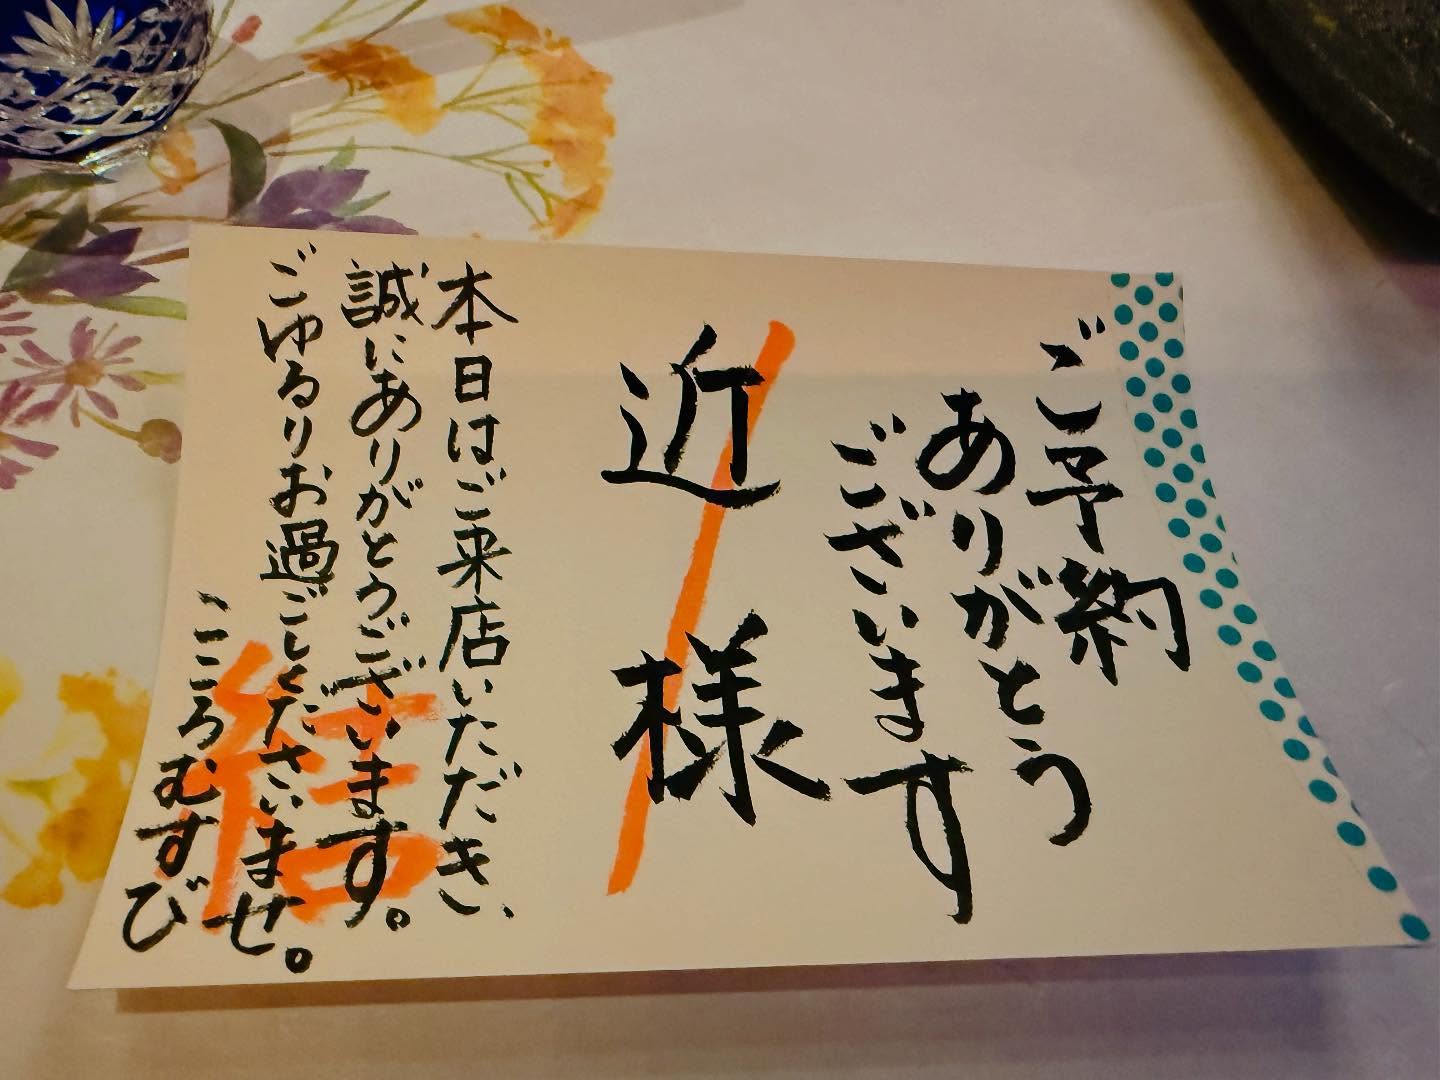 ご予約
ありがとう
ございます
近 様
本日はご来店いただき、
誠にありがとうございます。
ごゆるりお過ごしくださいませ。
こころむすび
結